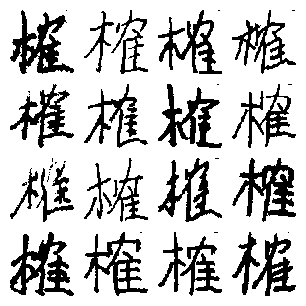 榷榷榷榷
榷榷榷榷
榷榷榷榷
榷榷榷榷